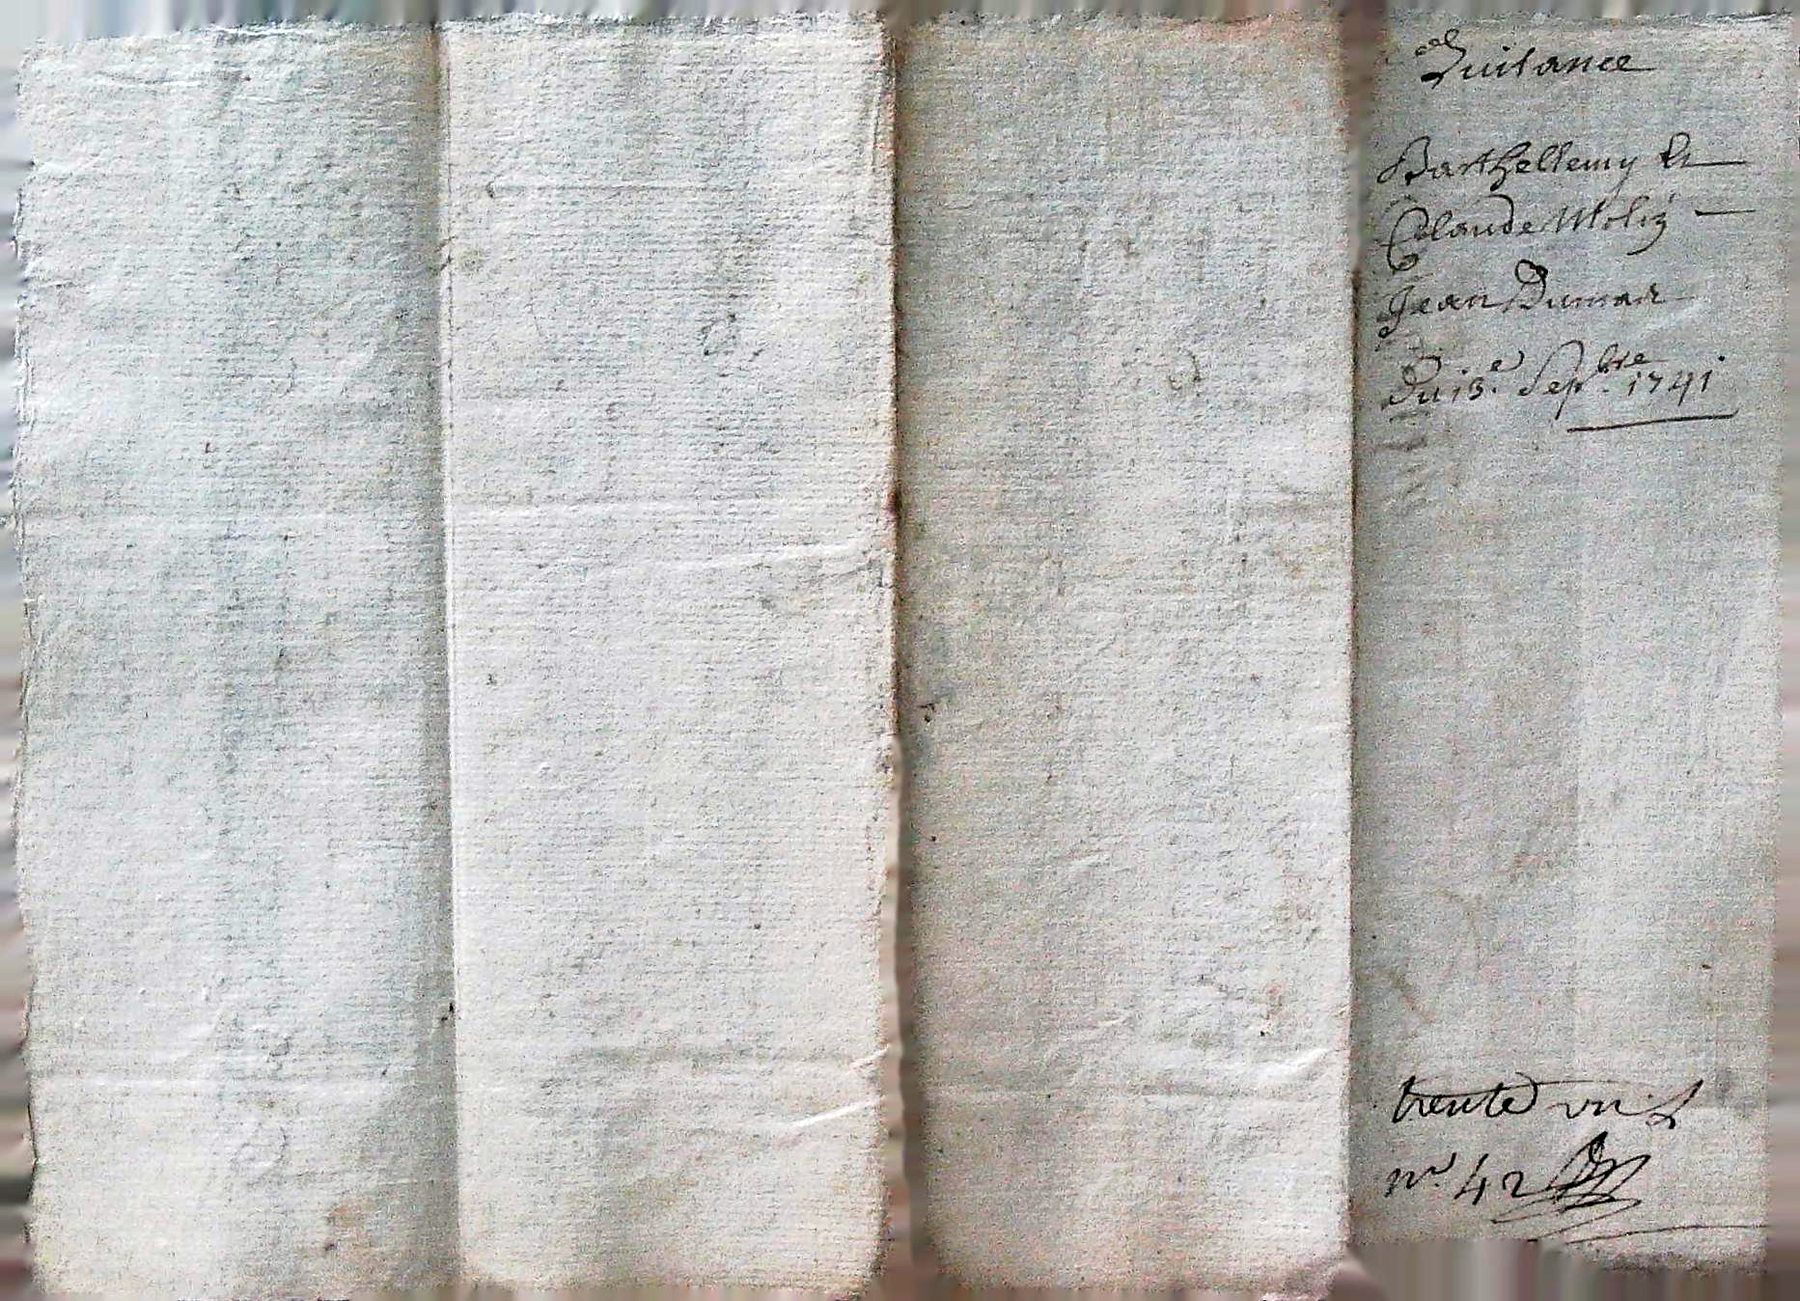 Quitance
Barthellemy &
Claude Molin
Jean Dumas
Du 13.e Sepbre. 1741
trente un
no. 42